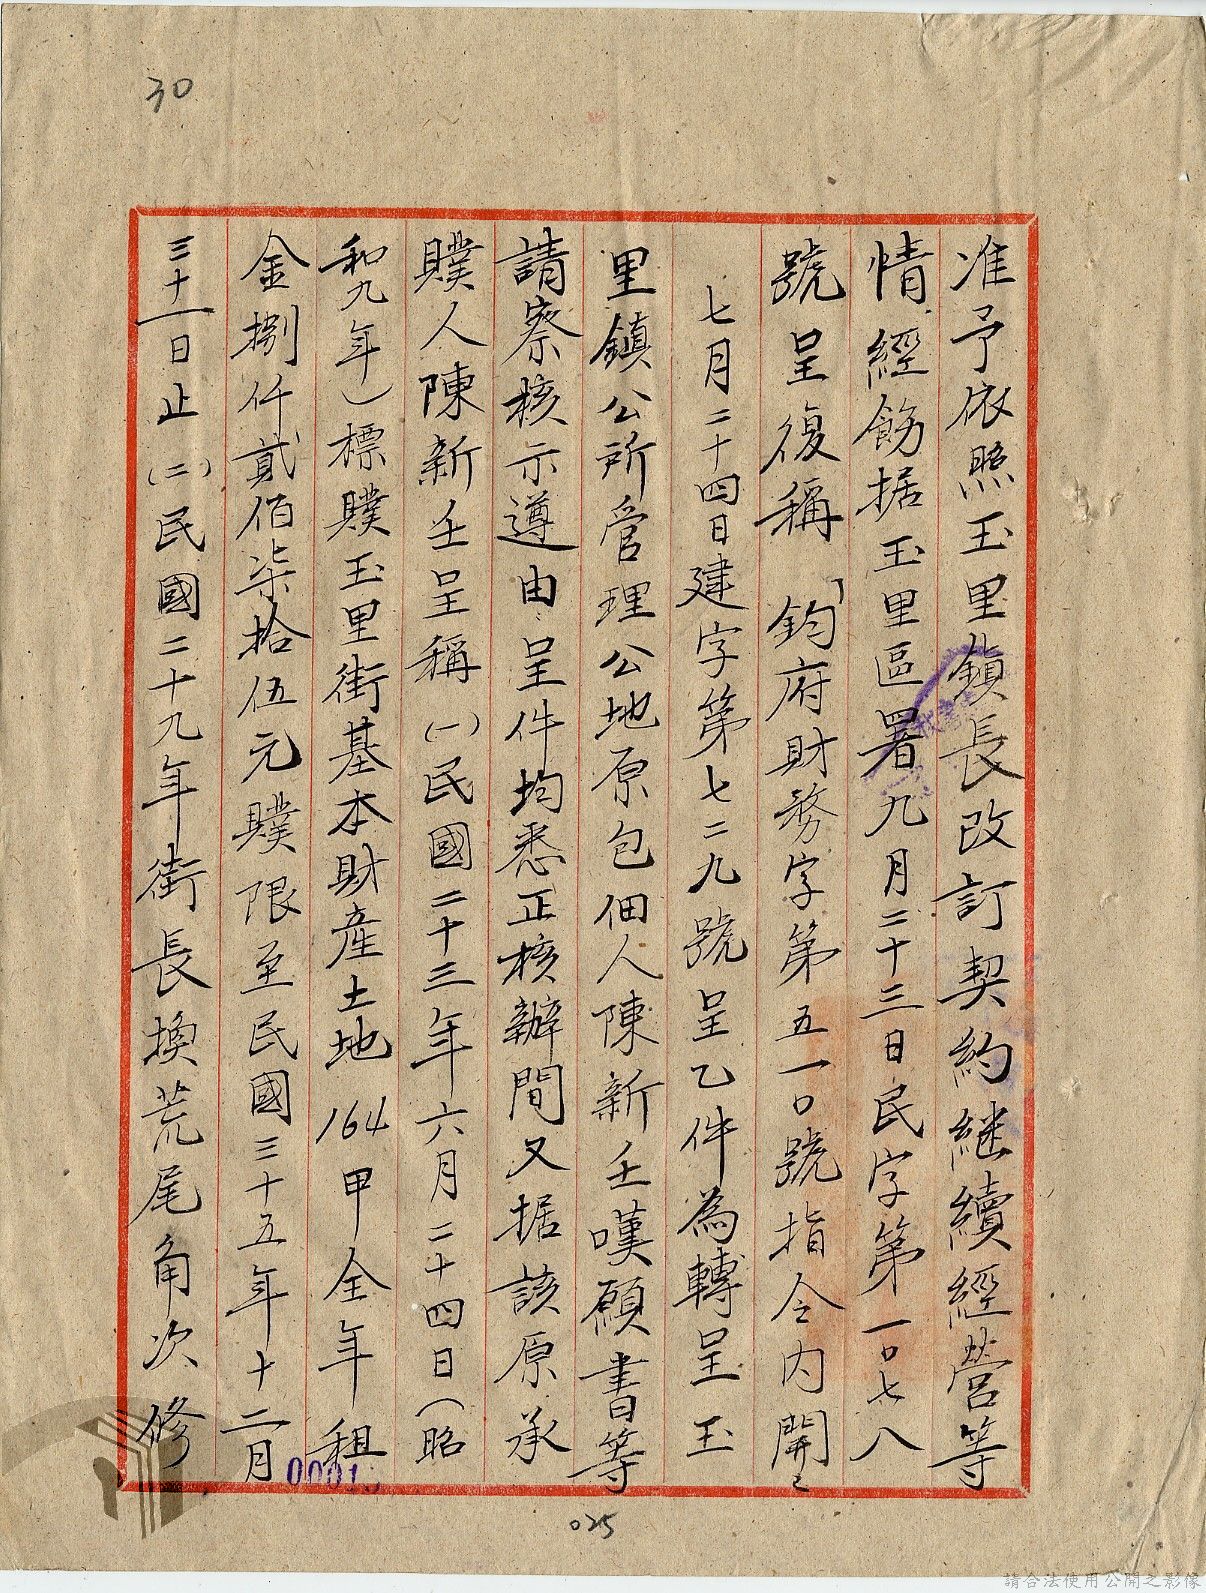 30
准予依照玉里鎮長改訂契約継續經營等
情經飭据玉里區署九月二十三日民字第一0七八
號呈復稱「鈞府財務字第五一0號指令内開:
七月二十四日建字第七二九號呈乙件為轉呈玉
里鎮公所管理公地原包佃人陳新壬嘆願書等
請察核示遵由呈件均悉正核辦間又据該原承
贌人陳新壬呈稱(一)民國二十三年六月二十四日(昭
和九年)標贌玉里街基本財產土地164甲全年租
金捌仟貳佰柒拾伍元贌限至民國三十五年十二月
三十一日止(二)民國二十九年街長換荒尾角次修
0001
025
請合法使用公開之影像